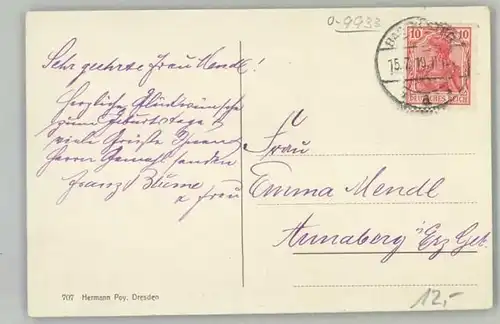 0-9933
Sehr geehrte Frau Mendl!
Herzliche Glückwünsche
zum Geburtstage &
viele Grüße Ihrem
Herrn Gemahl senden
Franz Blüme
& Frau
10 10
DEUTSCHES REICH
15.7.19
a
Frau
Emma Mendl
Annaberg i/Erz Geb.
12,-
707 Hermann Poy, Dresden